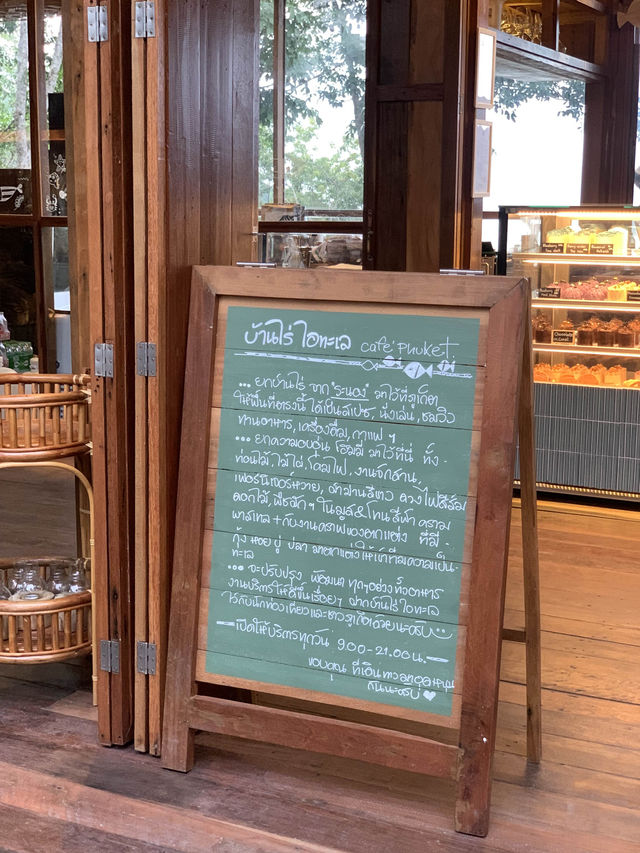 บ้านไร่ ไอทะเล café Phuket
... ยกบ้านไร่ จาก "ระนอง" มาไว้ที่ภูเก็ต
ให้พื้นที่ตรงนี้ ได้เป็นสเปซ, นั่งเล่น, ชมวิว
ทานอาหาร, เครื่องดื่ม, กาแฟ ฯ
... ยกความอบอุ่น โฮมมี่ มาไว้ที่นี่ ทั้ง-
ท่อนไม้, ไม้ไผ่, โคมไฟ, งานจักสาน,
เฟอร์นิเจอร์หวาย, ผ้าม่านสีขาว ดวงไฟสีส้ม
ดอกไม้, พืชผัก ฯ ในมูส&โทนสีฟ้า คราม
พาสเทล + กับงานคราฟของตกแต่ง ที่มี-
กุ้ง หอย ปู ปลา มาตกแต่งให้เข้าถึงความเป็น-
ทะเล
... จะปรับปรุง พัฒนา ทุกๆอย่าง ทั้งอาหาร
งานบริการ ให้ดีขึ้นเรื่อยๆ ฝากบ้านไร่ ไอทะเล
ไว้กับนักท่องเที่ยวและชาวภูเก็ตด้วยนะครับ...
—เปิดให้บริการทุกวัน 9.00-21.00 น.—
ขอบคุณ ที่เดินทางมาอุดหนุน
กันนะครับ ♥